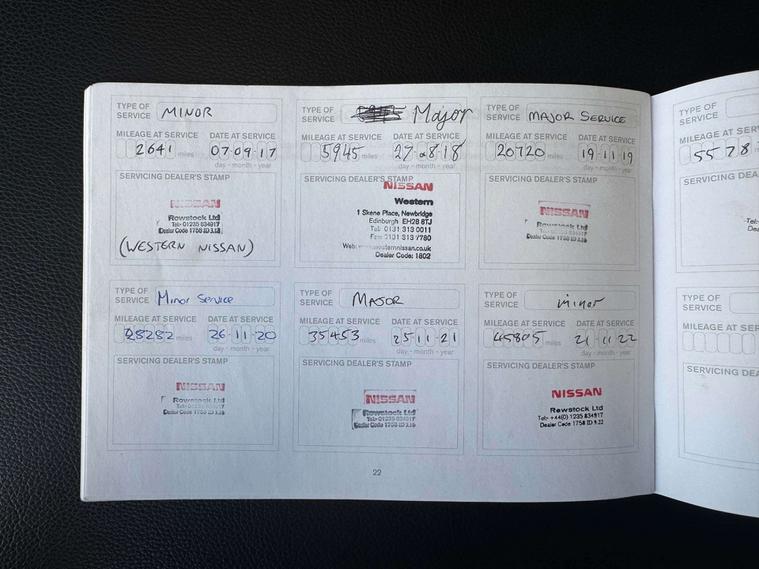 TYPE OF SERVICE MINOR
MILEAGE AT SERVICE DATE AT SERVICE
2641 miles 07·09·17
day - month - year
SERVICING DEALER'S STAMP
NISSAN
Rowstock Ltd
Tel: 01235 834917
Dealer Code 1758 ID 3.18
(WESTERN NISSAN)
TYPE OF SERVICE Major
MILEAGE AT SERVICE DATE AT SERVICE
5945 miles 27·08·18
day - month - year
SERVICING DEALER'S STAMP
NISSAN
Western
1 Skene Place, Newbridge
Edinburgh EH28 8TJ
Tel: 0131 313 0011
Fax: 0131 313 7780
Dealer Code: 1802
TYPE OF SERVICE MAJOR SERVICE
MILEAGE AT SERVICE DATE AT SERVICE
20720 miles 19·11·19
day - month - year
SERVICING DEALER'S STAMP
NISSAN
Rowstock Ltd
Dealer Code 1758 ID 3.18
TYPE OF SERVICE
MILEAGE AT
5578
SERVICING DEA
TYPE OF SERVICE Minor Service
MILEAGE AT SERVICE DATE AT SERVICE
28282 miles 26·11·20
day - month - year
SERVICING DEALER'S STAMP
NISSAN
Rowstock Ltd
Dealer Code 1758 ID 3.18
TYPE OF SERVICE MAJOR
MILEAGE AT SERVICE DATE AT SERVICE
35453 miles 25·11·21
day - month - year
SERVICING DEALER'S STAMP
NISSAN
Rowstock Ltd
Tel: 01235 834917
Dealer Code 1758 ID 3.18
TYPE OF SERVICE minor
MILEAGE AT SERVICE DATE AT SERVICE
45805 miles 21·11·22
day - month - year
SERVICING DEALER'S STAMP
NISSAN
Rowstock Ltd
Tel: +44(0) 1235 834917
Dealer Code 1758 ID 9.22
TYPE OF SERVICE
MILEAGE AT SER
SERVICING DEA
22